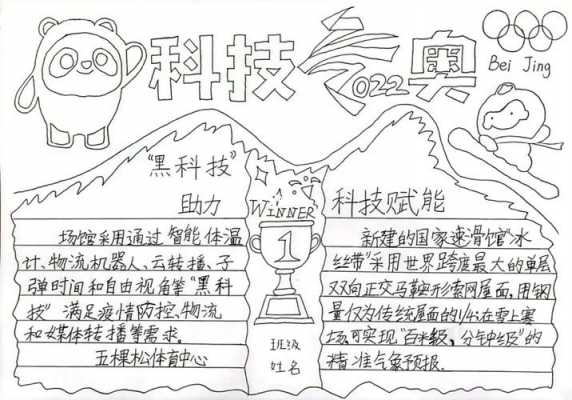 科技冬奥
2022
Bei Jing
"黑科技"
助力
场馆采用通过智能体温
计、物流机器人、云转播、子
弹时间和自由视角等"黑科
技"满足疫情防控、物流
和媒体转播等需求。
五棵松体育中心
WINNER
1
班级
姓名
科技赋能
新建的国家速滑馆"冰
丝带"采用世界跨度最大的单层
双向正交马鞍形索网屋面,用钢
量仅为传统屋面的1/4;在雪上赛
场,可实现"百米级、分钟级"的
精准气象预报.